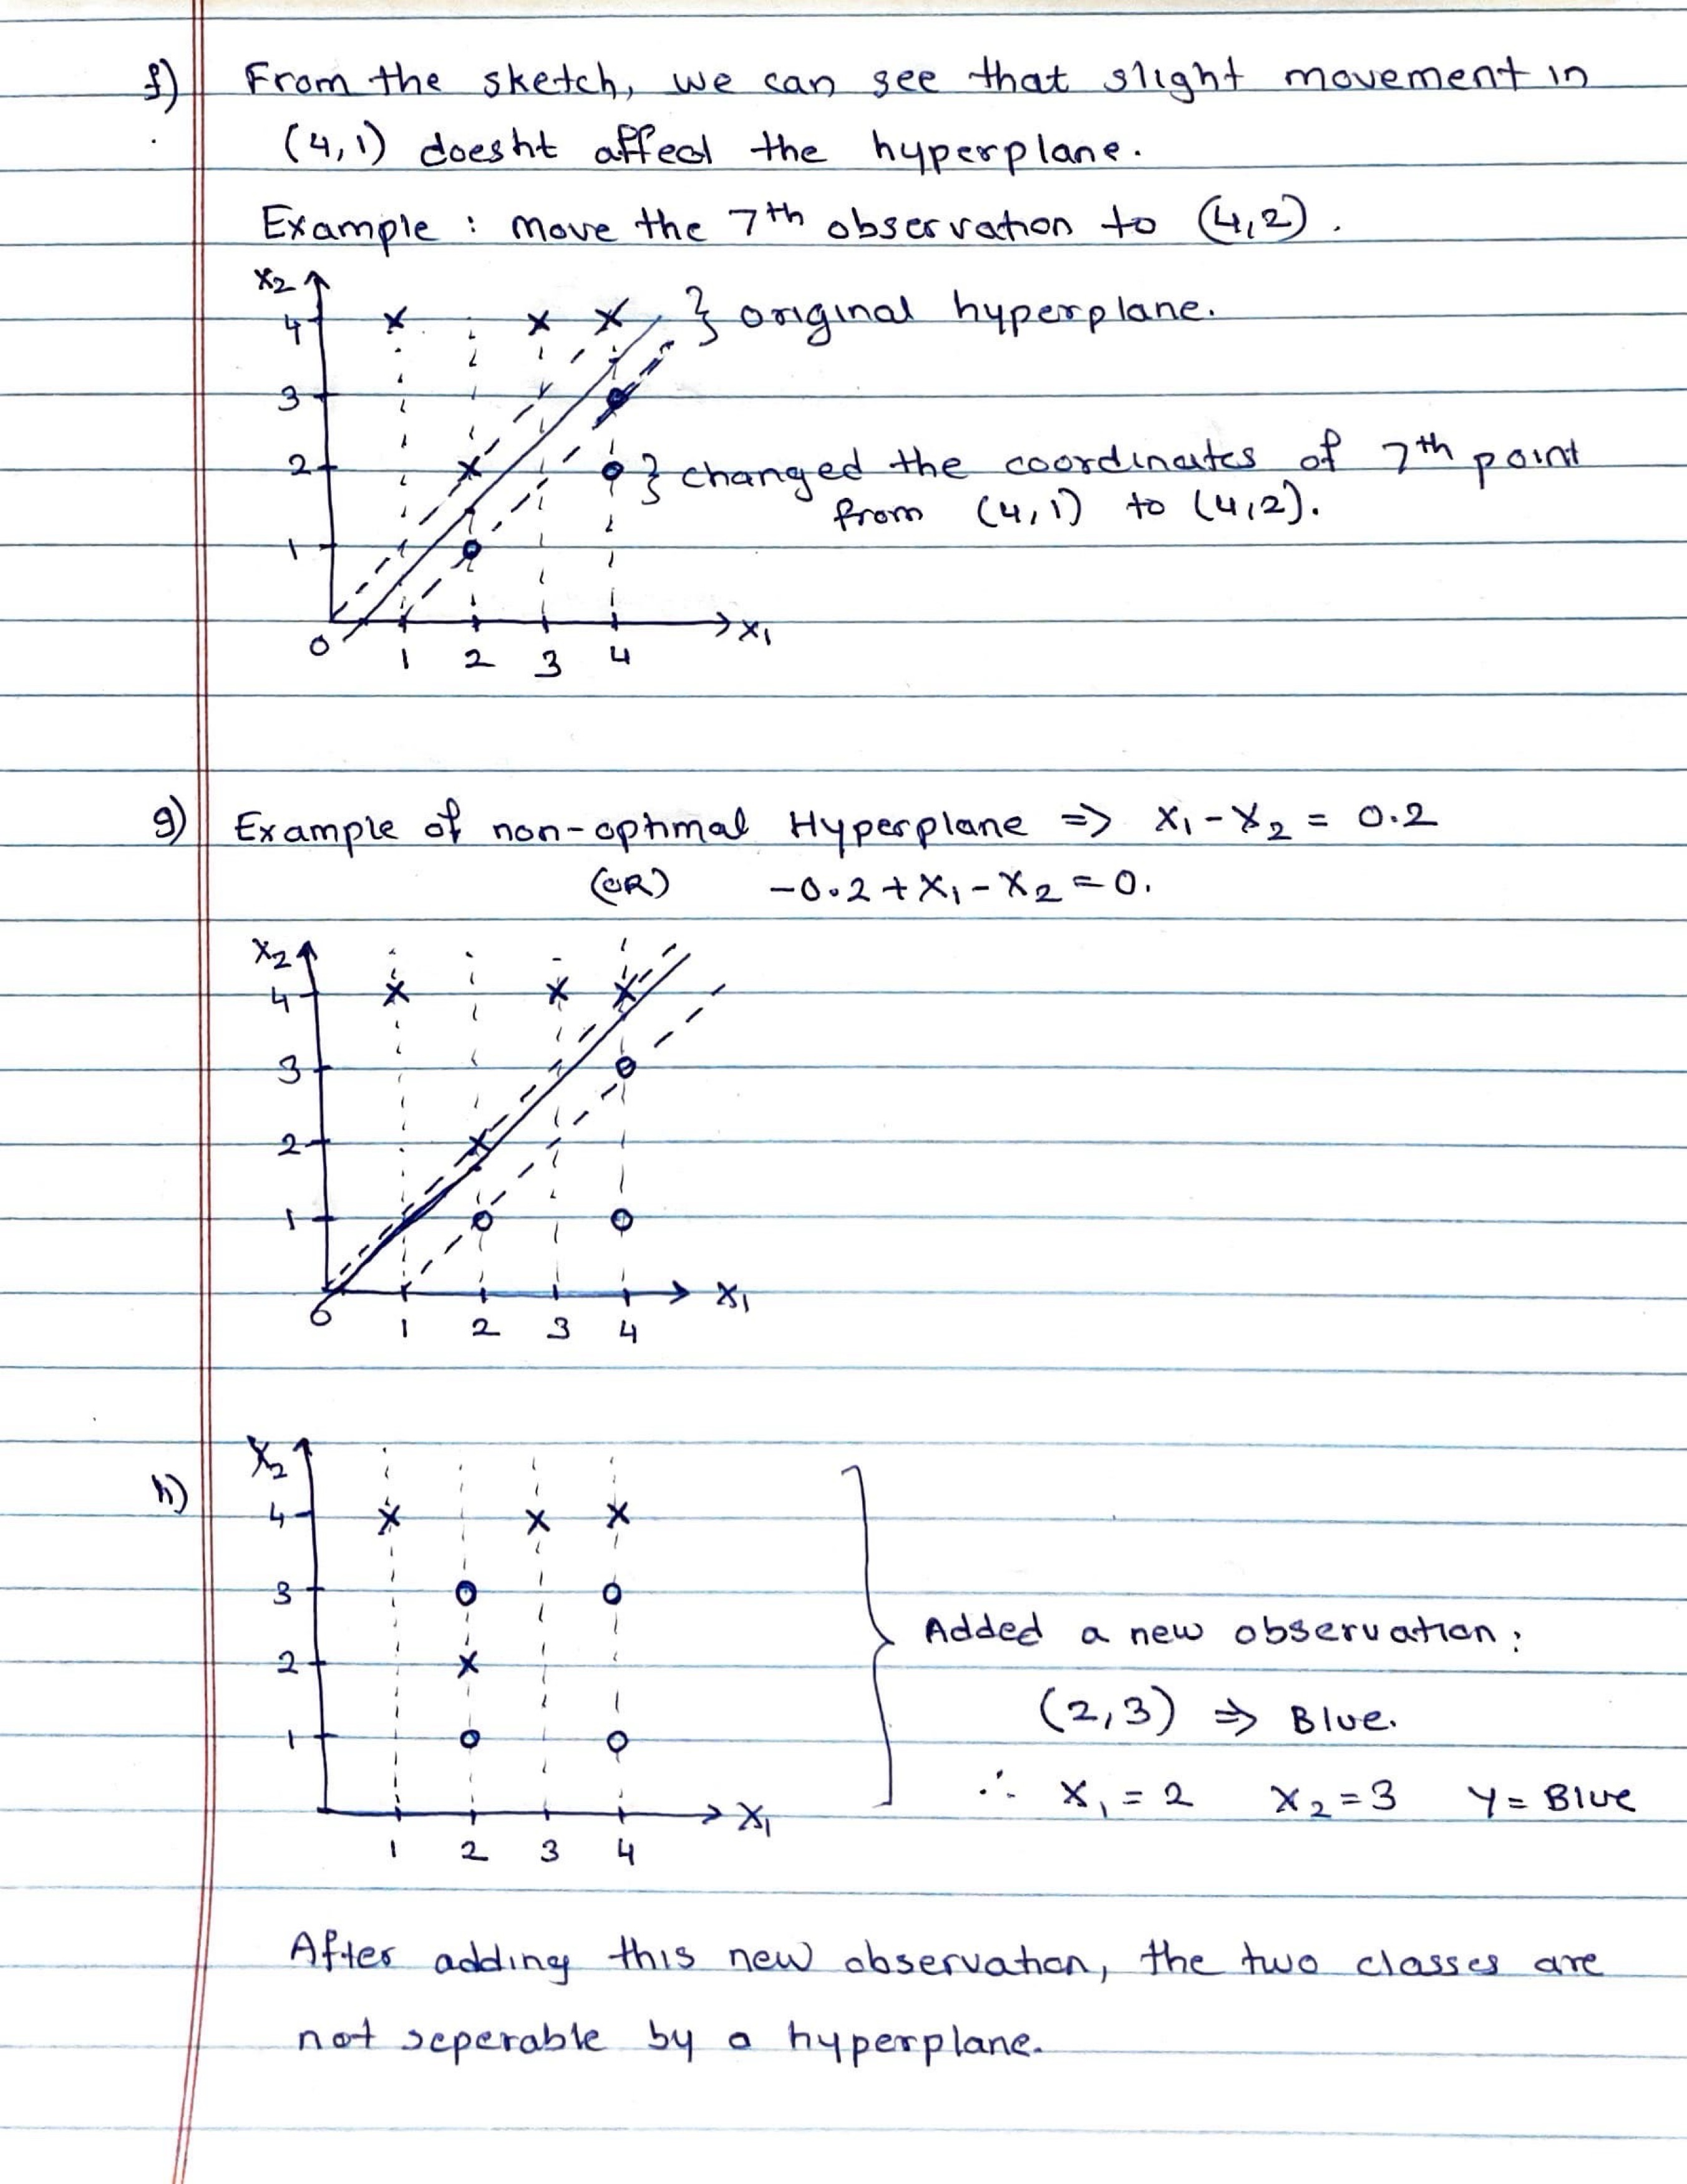 f) From the sketch, we can see that slight movement in
(4,1) doesnt affect the hyperplane.
Example : move the 7th observation to (4,2).
X2
4
} original hyperplane.
3
2
} changed the coordinates of 7th point
from (4,1) to (4,2).
1
0 1 2 3 4 X1
g) Example of non-optimal Hyperplane => X1 - X2 = 0.2
(OR) -0.2 + X1 - X2 = 0.
X2
4
3
2
1
0 1 2 3 4 X1
h)
X2
4
3
Added a new observation:
2
(2,3) => Blue.
1
∴ X1 = 2 X2 = 3 Y = Blue
X1
1 2 3 4
After adding this new observation, the two classes are
not seperable by a hyperplane.